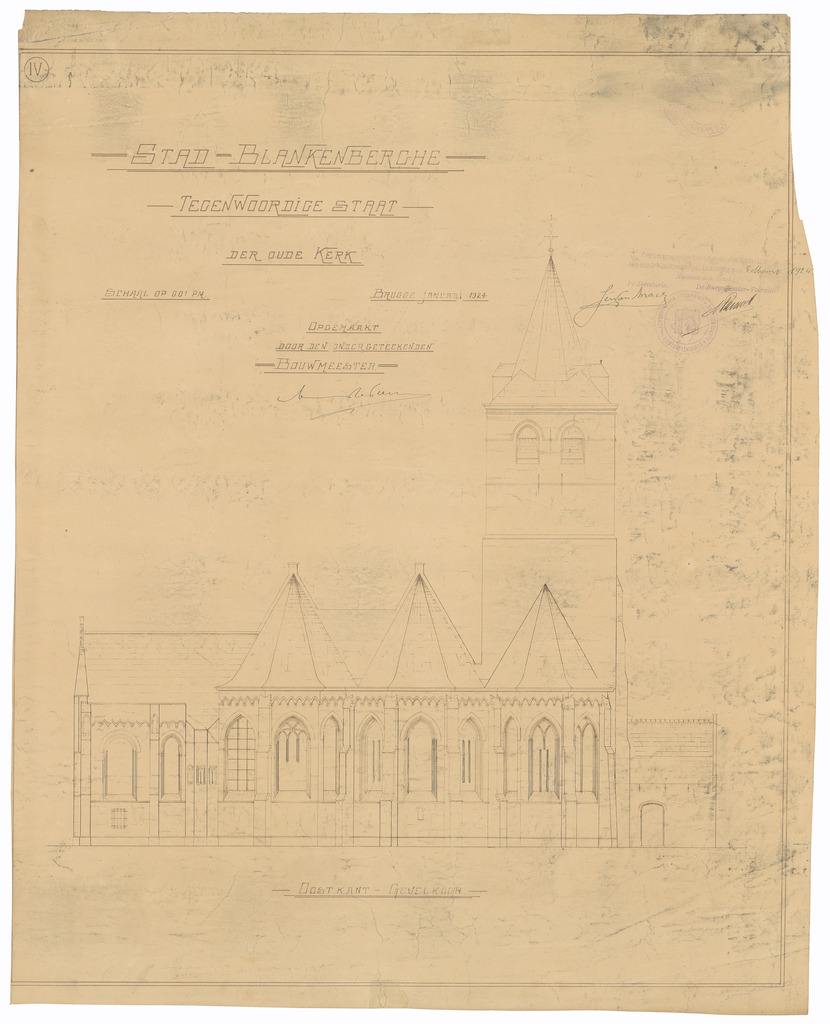 IV
STAD - BLANKENBERGHE
TEGENWOORDIGE STAAT
DER OUDE KERK
SCHAAL OP 0.01 P.M.
BRUGGE JANUARI 1924
OPGEMAAKT
DOOR DEN ONDERGETEEKENDEN
BOUWMEESTER
1924
OOSTKANT - GEVELKOOR